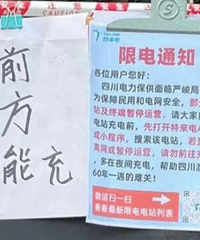 前
方
能充
限电通知
各位用户您好:
四川电力保供面临严峻局
为保障民用和电网安全,部
站及终端暂停运营,请大家
电站充电前,先打开特来电
或小程序,搜索该电站,若
离网或暂停运营,请勿前往
,多在夜间充电,帮助四川
60年一遇的难关!
微信扫一扫
查看最新限电电站列表